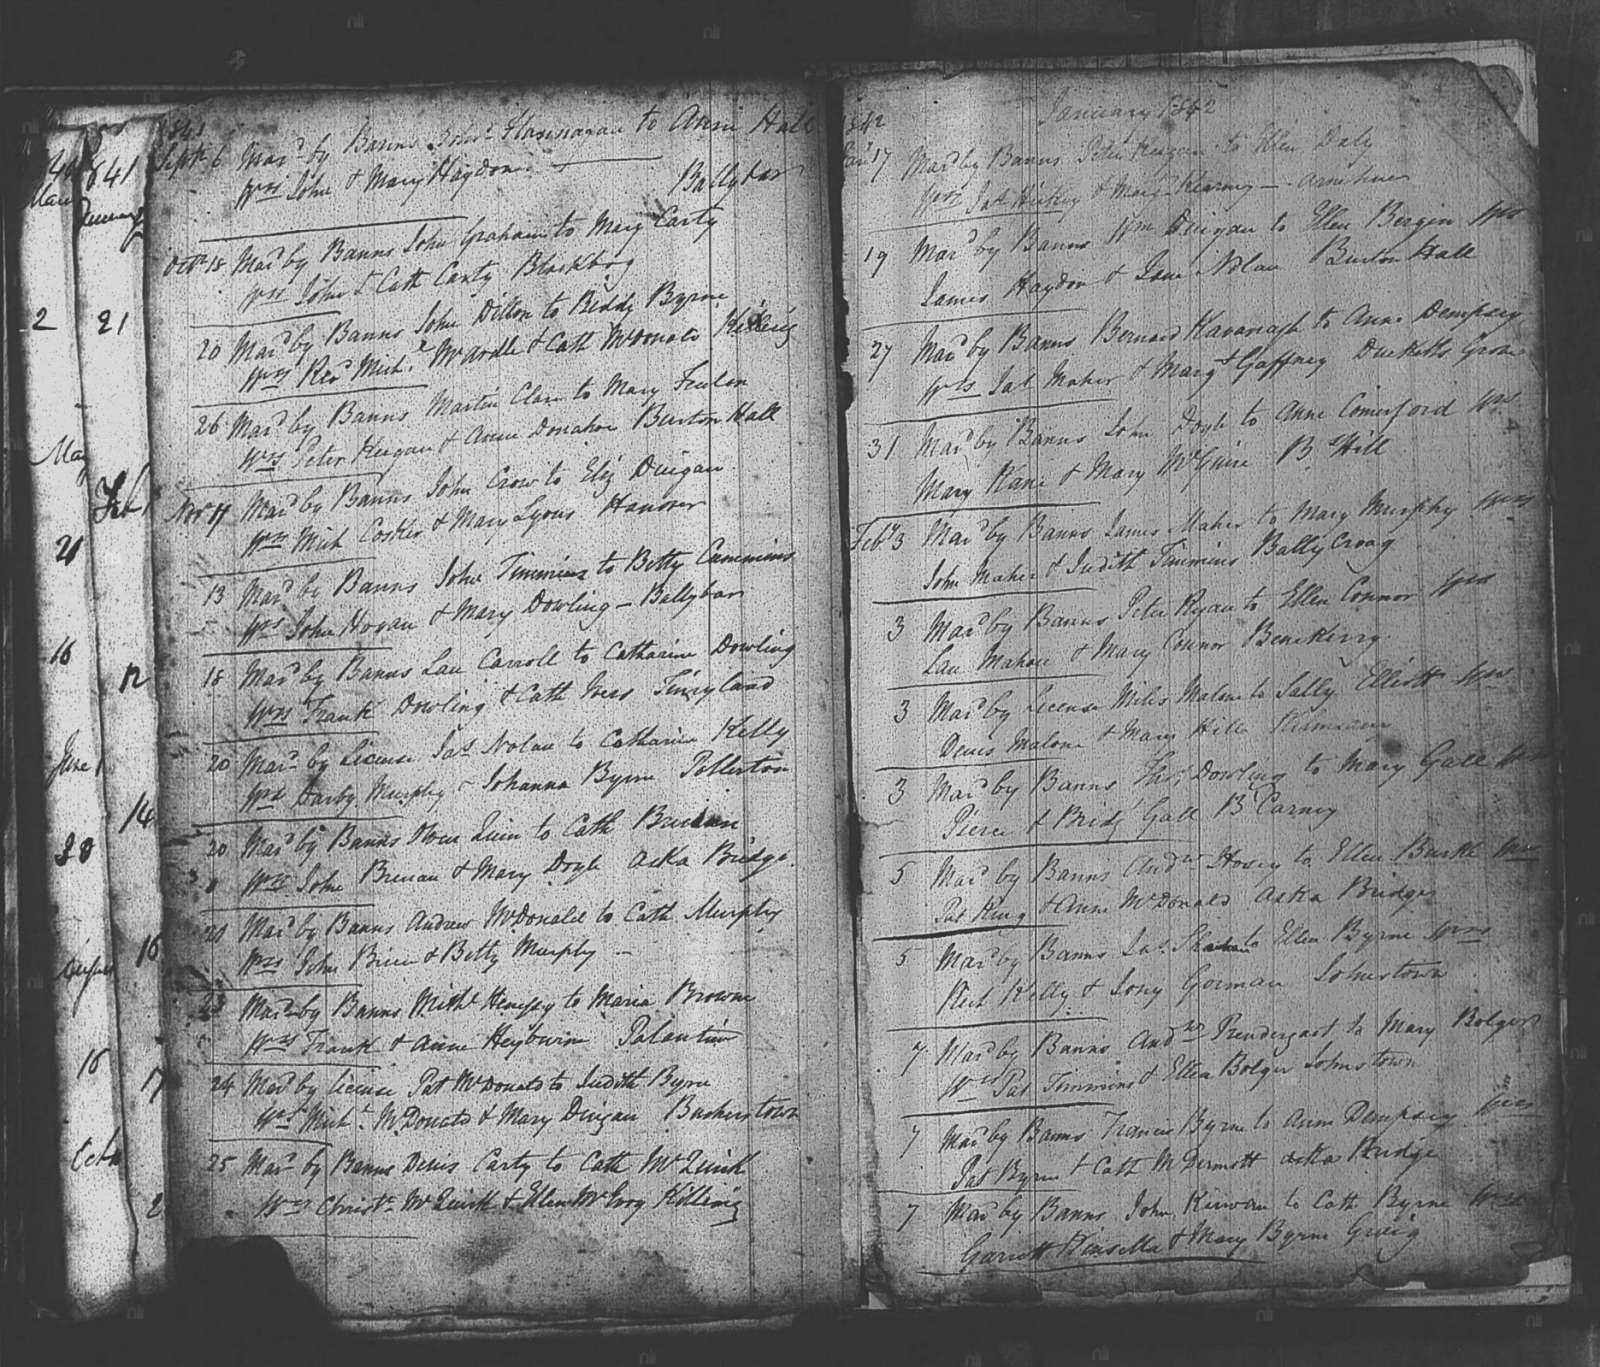 1841
Mar
1841
January
2
21
May
Feb 1
21
16
12
June 1
14
20
August
16
16
17
Oct
2
1841
Sept 6 Mard by Banns Flannagan to Anne Hall
Wss John & Mary Haydon Ballybar
Octr 18 Mard by Banns John Graham to Mary Carty
Wss John & Cath Carty Blackbog
20 Mard by Banns John Dillon to Biddy Byrne
Wss Revd Michl McArdle & Cath McDonald
26 Mard by Banns Martin Clare to Mary Fenlon
Wss Peter Keegan & Anne Donahoe Burton Hall
Novr 11 Mard by Banns John Crow to Eliz Duigan
Wss Mich Costler & Mary Lyons Hanover
13 Mard by Banns John Timmins to Betty Cummins
Wss John Hogan & Mary Dowling - Ballybar
18 Mard by Banns Lau Carroll to Catharine Dowling
Wss Frank Dowling & Cath Ivers Tinryland
20 Mard by License Jas Nolan to Catharine Kelly
Wss Darby Murphy & Johanna Byrne Pollerton
20 Mard by Banns Owen Quin to Cath
Wss John Brenan & Mary Doyle Aska Bridge
21 Mard by Banns Andrew McDonald to Cath Murphy
Wss John Brien & Betty Murphy -
23 Mard by Banns Michl to Maria Browne
Wss Frank & Anne Palentine
24 Mard by License Pat McDonald to Judith Byrne
Wss Michl McDonald & Mary Duigan Busherstown
25 Mard by Banns Denis Carty to Cath McQuirk
Wss Christr McQuirk & Ellen McEvoy Killinig
1842 January 1842
Jany 17 Mard by Banns Peter Keegan to Ellen Daly
Wss Jas Hickey & Mary Kearney -
19 Mard by Banns Wm Duigan to Ellen Bergin Wss
James Haydon & Jane Nolan Burton Hall
27 Mard by Banns Bernard Kavanagh to Anne Dempsey
Wss Jas Maher & Margt Gaffney Ducketts Grove
31 Mard by Banns John Doyle to Anne Comerford Wss
Mary Kane & Mary McGuire B. Hill
Feby 3 Mard by Banns James Maher to Mary Murphy Wss
John Maher & Judith Timmins BallyCroag
3 Mard by Banns Peter Ryan to Ellen Connor Wss
Lau Mahon & Mary Connor Benekerry
3 Mard by License Miles Malone to Sally Elliott Wss
Denis Malone & Mary Hill
3 Mard by Banns Thos Dowling to Mary Gall Wss
Pierce & Bridg Gall B Carney
5 Mard by Banns Andw Hosey to Ellen Burke Wss
Pat King & Anne McDonald Aska Bridge
5 Mard by Banns Jas to Ellen Byrne Wss
Rich Kelly & Gorman Johnstown
7 Mard by Banns Andw Prendergast to Mary Bolger
Wss Pat Timmins & Ellen Bolger Johnstown
7 Mard by Banns Francis Byrne to Anne Dempsey Wss
Pat Byrne & Cath McDermott Aska Bridge
7 Mard by Banns John Kirwan to Cath Byrne Wss
Garrett Kinsella & Mary Byrne Graig